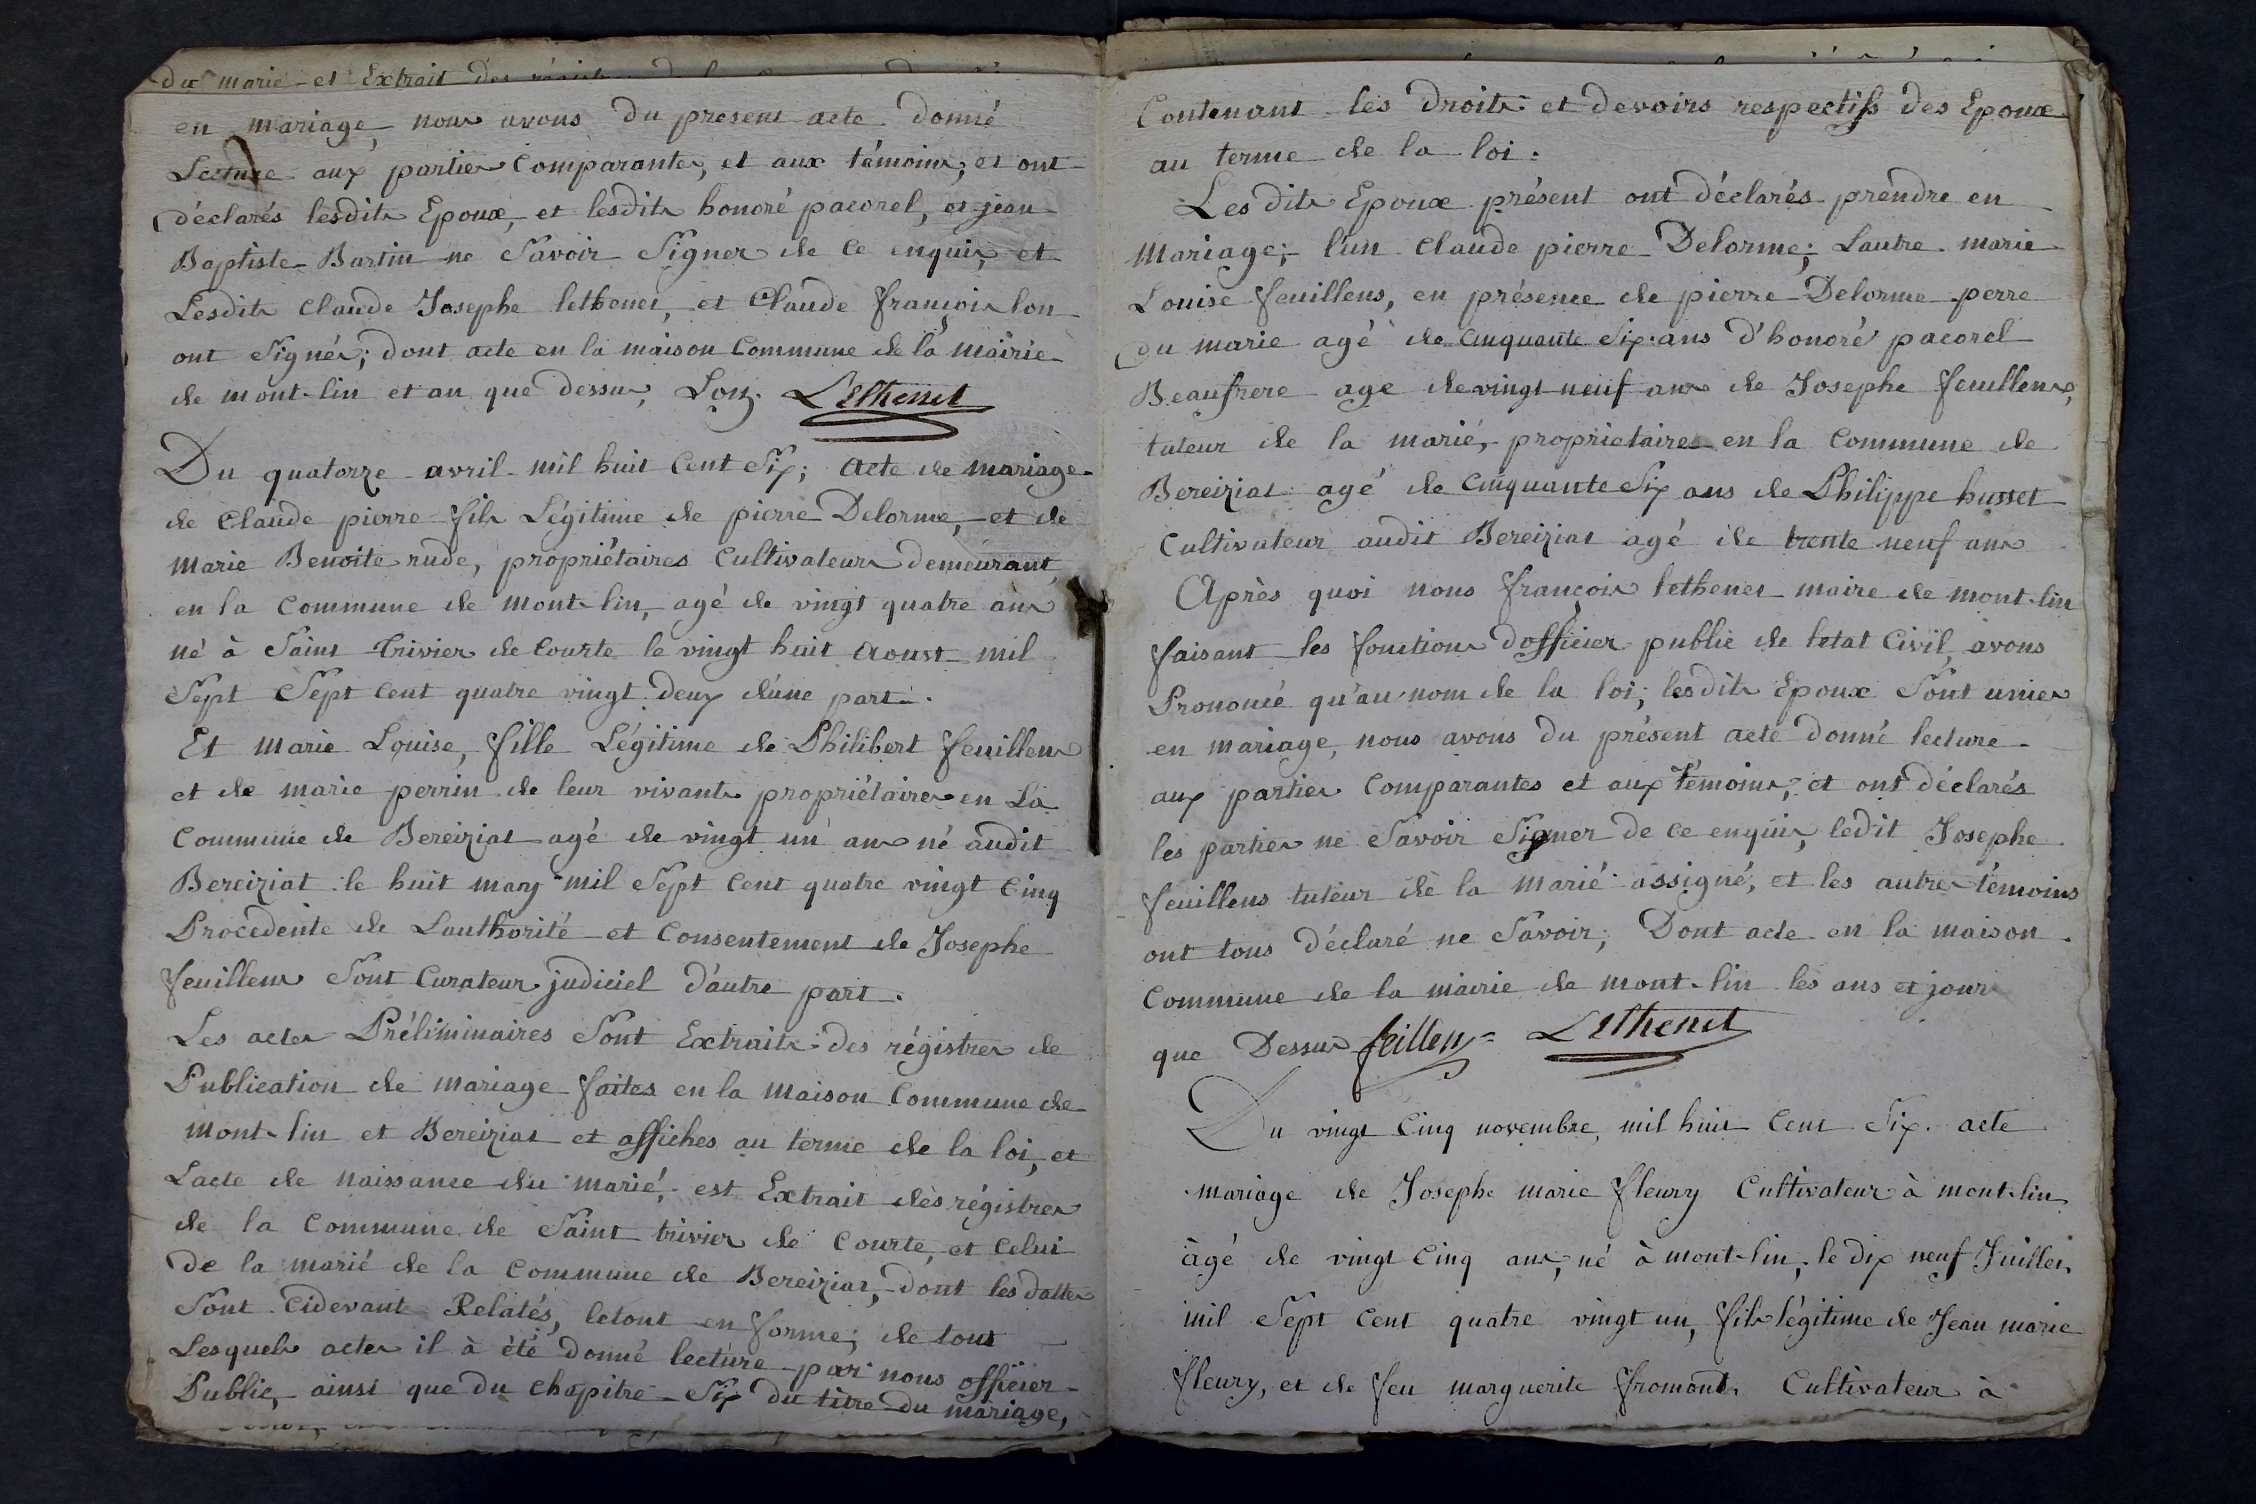 du marie et Extrait des
en mariage, nous avons du present acte donné
Lecture aux parties Comparantes, et aux témoins, et ont
déclarés lesdits Epoux, et lesdits honoré pacorel, et jean
Baptiste Bartin ne Savoir Signer de ce enquis, et
Lesdits Claude Josephe lethenet, et Claude françois lon
ont Signés; dont acte en la maison Commune de la mairie
de mont-lin et an que dessus, Lon. LEthenet
Du quatorze avril mil huit Cent Six; acte de mariage
de Claude pierre fils Légitime de pierre Delorme, et de
Marie Benoite rude, propriétaires Cultivateurs demeurant
en la Commune de mont-lin, agé de vingt quatre ans
né à Saint Trivier de Courte le vingt huit Aoust mil
Sept Sept Cent quatre vingt deux d'une part.
Et Marie Louise, fille Légitime de Philibert feuillens
et de marie perrin de leur vivants propriétaires en La
Commune de Bereiziat agé de vingt un ans né audit
Bereiziat le huit mary mil Sept Cent quatre vingt Cinq
Procedente de Lauthorité et Consentement de Josephe
feuillens Sont Curateur judiciel d'autre part.
Les actes Préliminaires Sont Extraits des régistres de
Publication de mariage faites en la Maison Commune de
Mont-lin et Bereiziat et affiches au terme de la loi, et
Lacte de Naissance du marié, est Extrait des régistres
de la Commune de Saint trivier de Courte, et Celui
De la marié de la Commune de Bereiziat, dont les dattes
Sont Cidevant Relatés, letout en forme; de tout
Lesquels actes il à été donné lecture par nous officier
Public, ainsi que du Chapitre Six du titre du mariage,
Contenant les droits et devoirs respectifs des Epoux
au terme de la loi.
Les dits Epoux présent ont déclarés prendre en
Mariage; l'un Claude pierre Delorme; Lautre marie
Louise feuillens, en présence de pierre Delorme perre
du marie agé de Cinquante Six ans d'honoré pacorel
Beaufrere age de vingt neuf ans de Josephe feuillens,
tuteur de la marié, proprietaires en la Commune de
Bereiziat agé de Cinquante Six ans de Philippe husset
Cultivateur audit Bereiziat agé de trente neuf ans
Après quoi nous françois lethenet maire de mont-lin
faisant les fonctions d'officier public de letat Civil, avons
Prononcé qu'au nom de la loi; lesdits Epoux Sont unies
en mariage, nous avons du présent acte donné lecture
aux parties Comparantes et aux Témoins, et ont déclarés
les parties ne Savoir Signer de ce enquis, ledit Josephe
feuillens tuteur de la Marié assigné, et les autres témoins
ont tous déclaré ne Savoir; Dont acte en la maison
Commune de la mairie de mont-lin les ans et jour
que Dessus feillens LEthenet
Du vingt Cinq novembre, mil huit Cent Six. acte
mariage de Josephe marie fleury Cultivateur à mont-lin
àgé de vingt Cinq ans, né à mont-lin, le dix neuf Juillet,
mil Sept Cent quatre vingt un, fils légitime de Jean marie
fleury, et de feu marguerite fromont, Cultivateur à